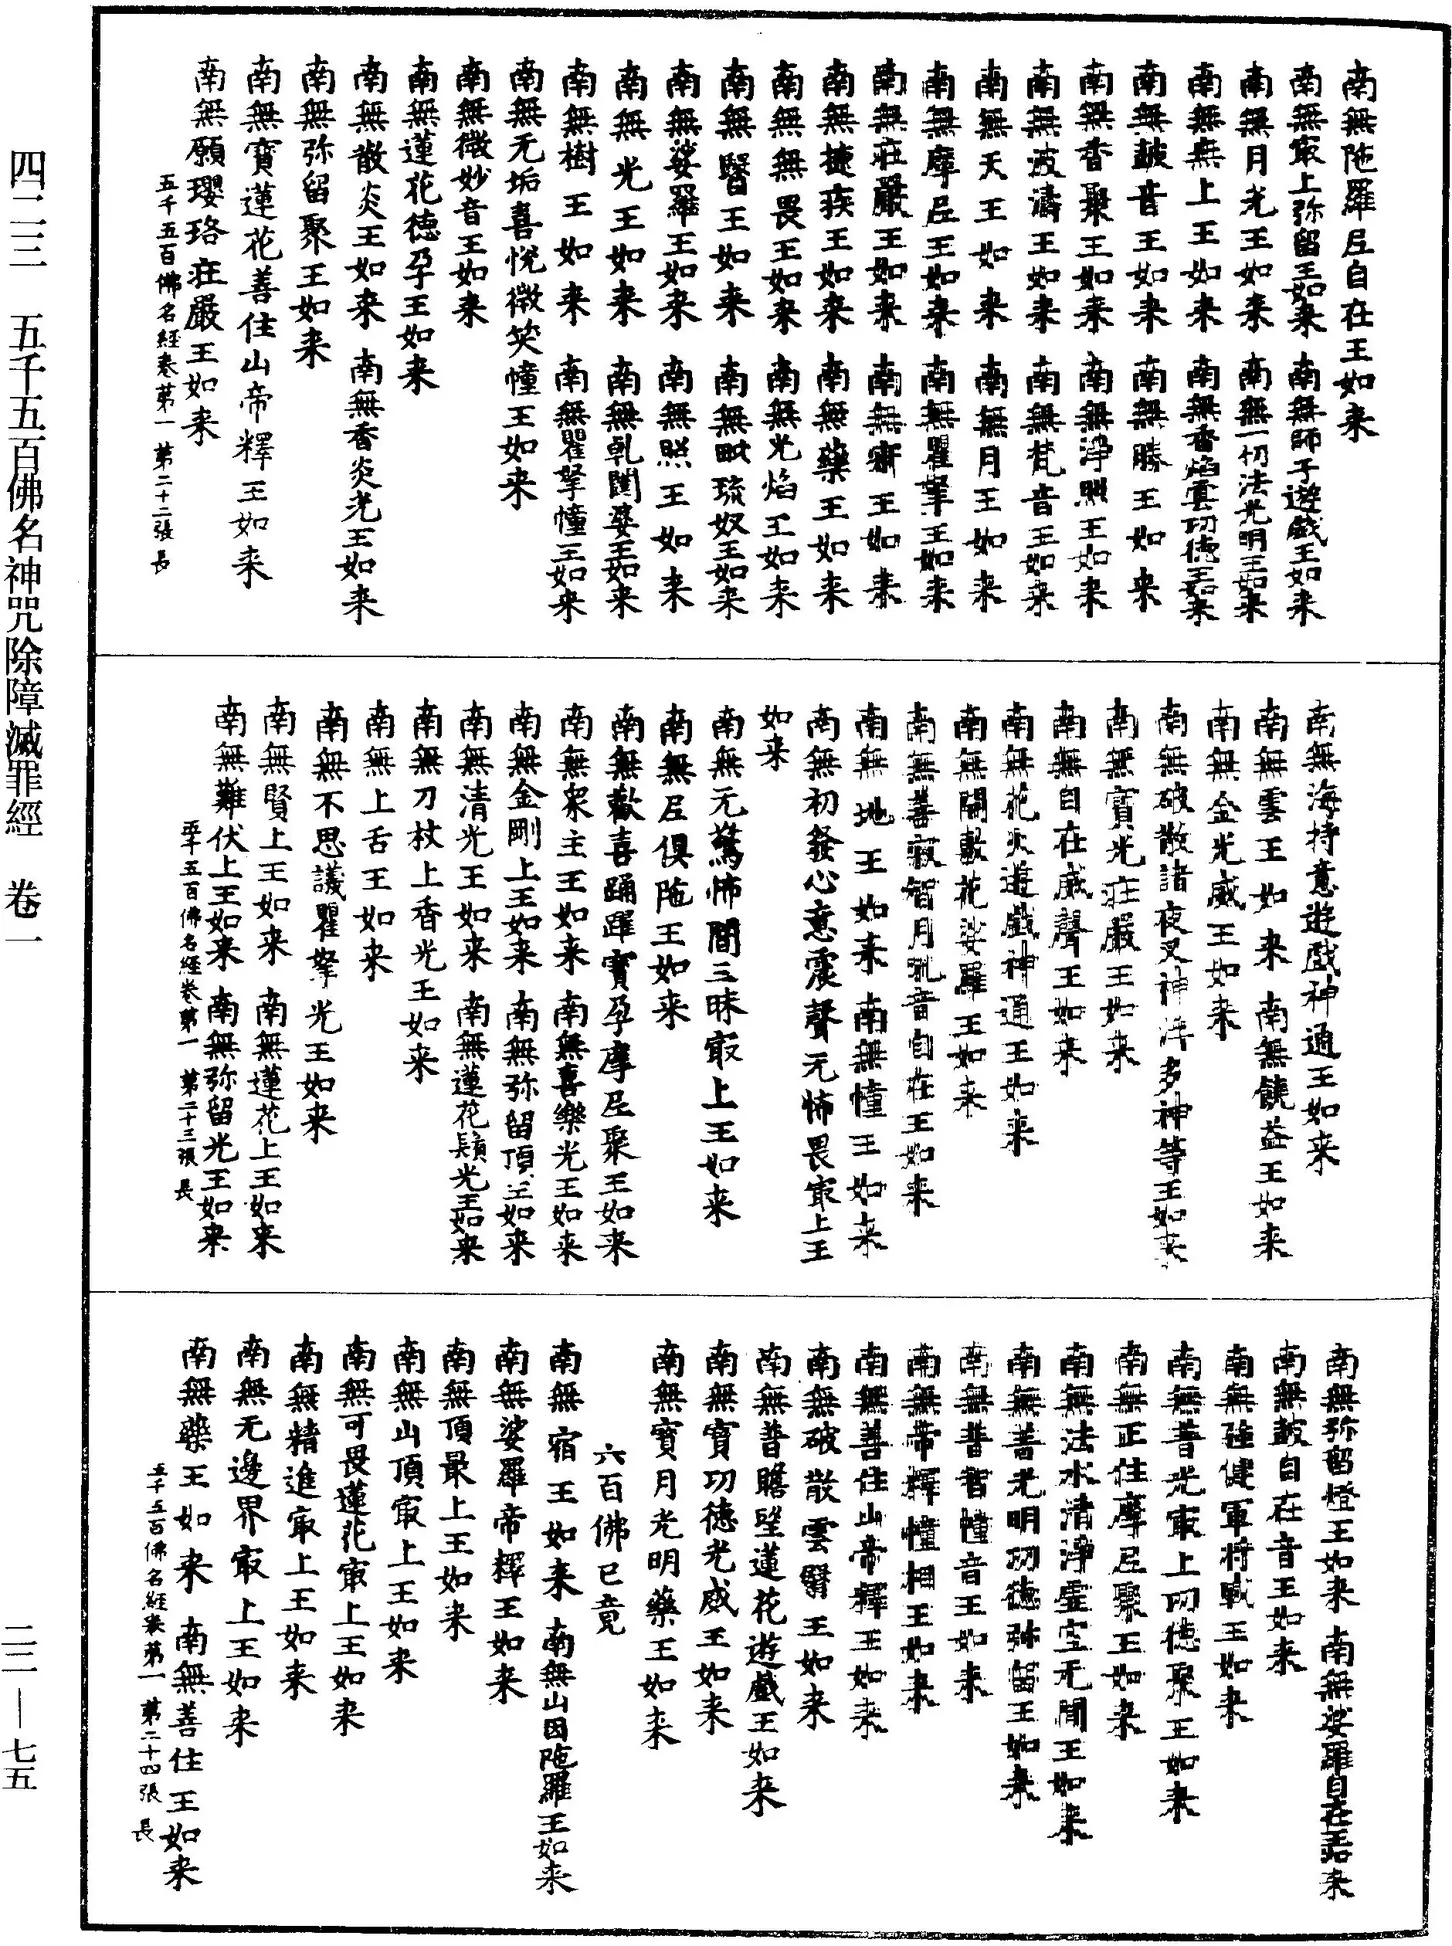 南無陁羅尼自在王如来
南無㝡上弥留王如来 南無師子遊戲王如来
南無月光王如来 南無一切法光明王如来
南無無上王如来 南無香焰雲功德王如来
南無皷音王如来 南無勝王如来
南無香聚王如来 南無淨照王如来
南無波濤王如来 南無梵音王如来
南無天王如来 南無月王如来
南無摩尼王如来 南無瞿拏王如来
南無莊嚴王如来 南無齋王如来
南無捷疾王如来 南無藥王如来
南無無畏王如来 南無光焰王如来
南無毉王如来 南無毗琉奴王如来
南無娑羅王如来 南無照王如来
南無光王如来 南無乹闥婆王如来
南無樹王如来 南無瞿拏幢王如来
南無无垢喜悅微笑幢王如来
南無微妙音王如来
南無蓮花德孕王如来
南無散炎王如来 南無香炎光王如来
南無弥留聚王如来
南無寶蓮花善住山帝釋王如来
南無願瓔珞莊嚴王如来
五千五百佛名經卷第一 第二十二張 長
南無海持意遊戲神通王如来
南無雲王如来 南無饒益王如来
南無金光威王如来
南無破散諸夜叉神洋多神等王如来
南無寶光莊嚴王如来
南無自在威聲王如来
南無花火遊戲神通王如来
南無開敷花娑羅王如来
南無善寂智月吼音自在王如来
南無地王如来 南無幢王如来
南無初發心意震聲无怖畏㝡上王
如来
南無无驚怖間三昧㝡上王如来
南無尼俱陁王如来
南無歡喜踊躍寶孕摩尼聚王如来
南無衆主王如来 南無喜樂光王如来
南無金剛上王如来 南無弥留頂王如来
南無清光王如来 南無蓮花鬚光王如来
南無刀杖上香光王如来
南無上舌王如来
南無不思議瞿拏光王如来
南無賢上王如来 南無蓮花上王如来
南無難伏上王如来 南無弥留光王如来
五千五百佛名經卷第一 第二十三張 長
南無弥留燈王如来 南無娑羅自在王如来
南無皷自在音王如来
南無強健軍將戰王如来
南無普光㝡上功德聚王如来
南無正住摩尼聚王如来
南無法水清淨虛空无間王如来
南無善光明功德弥留王如来
南無普智幢音王如来
南無帝釋幢相王如来
南無善住山帝釋王如来
南無破散雲翳王如来
南無普瞻望蓮花遊戲王如来
南無寶功德光威王如来
南無寶月光明藥王如来
六百佛已竟
南無宿王如来 南無山因陁羅王如来
南無娑羅帝釋王如来
南無頂最上王如来
南無山頂㝡上王如来
南無可畏蓮花㝡上王如来
南無精進㝡上王如来
南無无邊界㝡上王如来
南無藥王如来 南無善住王如来
五千五百佛名經卷第一 第二十四張 長
四二三 五千五百佛名神咒除障滅罪經 卷一
二二—七五